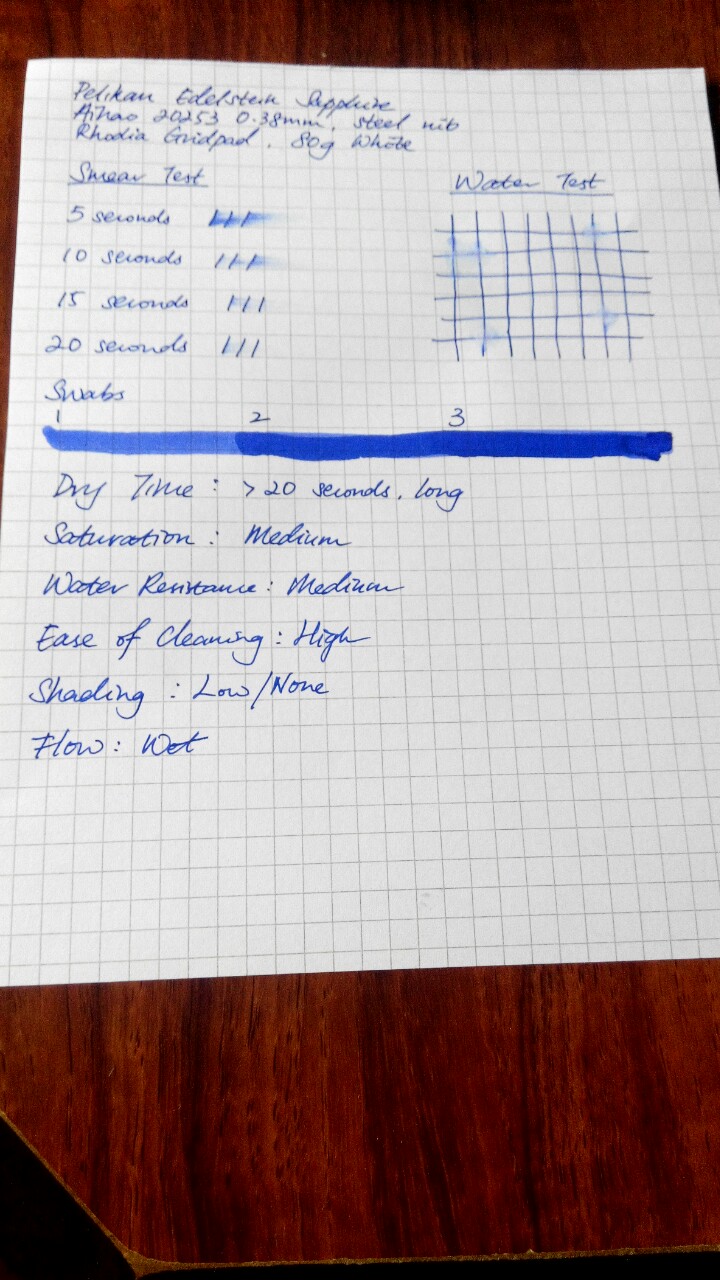 Pelikan Edelstein Sapphire
Aihao 20253 0.38mm, steel nib
Rhodia Gridpad, 80g White
Smear Test
5 seconds
10 seconds
15 seconds
20 seconds
Water Test
Swabs
1 2 3
Dry Time: >20 seconds, long
Saturation: Medium
Water Resistance: Medium
Ease of Cleaning: High
Shading: Low/None
Flow: Wet